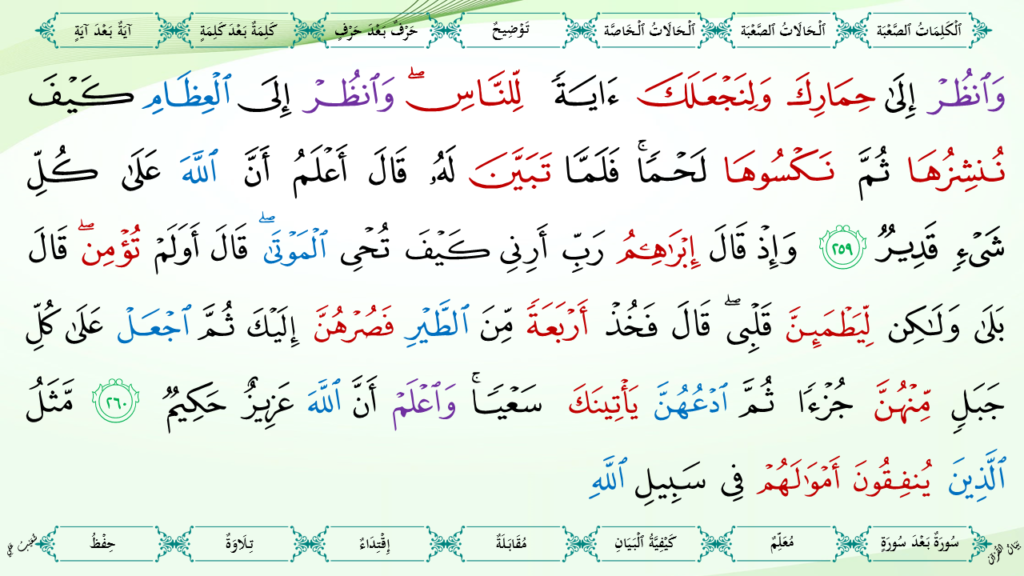 اَلْكَلِمَاتُ الصَّعْبَة اَلْحَالَاتُ الصَّعْبَة اَلْحَالَاتُ الْخَاصَّة تَوْضِيحٌ حَرْفٌ بَعْدَ حَرْفٍ كَلِمَةٌ بَعْدَ كَلِمَةٍ آيَةٌ بَعْدَ آيَةٍ
وَٱنظُرْ إِلَىٰ حِمَارِكَ وَلِنَجْعَلَكَ ءَايَةً لِّلنَّاسِ ۖ وَٱنظُرْ إِلَى ٱلْعِظَامِ كَيْفَ
نُنشِزُهَا ثُمَّ نَكْسُوهَا لَحْمًا ۚ فَلَمَّا تَبَيَّنَ لَهُۥ قَالَ أَعْلَمُ أَنَّ ٱللَّهَ عَلَىٰ كُلِّ
شَىْءٍ قَدِيرٌ ٢٥٩ وَإِذْ قَالَ إِبْرَٰهِـۧمُ رَبِّ أَرِنِى كَيْفَ تُحْىِ ٱلْمَوْتَىٰ ۖ قَالَ أَوَلَمْ تُؤْمِن ۖ قَالَ
بَلَىٰ وَلَـٰكِن لِّيَطْمَئِنَّ قَلْبِى ۖ قَالَ فَخُذْ أَرْبَعَةً مِّنَ ٱلطَّيْرِ فَصُرْهُنَّ إِلَيْكَ ثُمَّ ٱجْعَلْ عَلَىٰ كُلِّ
جَبَلٍ مِّنْهُنَّ جُزْءًا ثُمَّ ٱدْعُهُنَّ يَأْتِينَكَ سَعْيًا ۚ وَٱعْلَمْ أَنَّ ٱللَّهَ عَزِيزٌ حَكِيمٌ ٢٦٠ مَّثَلُ
ٱلَّذِينَ يُنفِقُونَ أَمْوَٰلَهُمْ فِى سَبِيلِ ٱللَّهِ
بَيَانُ الْقُرْآن سُورَةٌ بَعْدَ سُورَةٍ مُعَلِّمٌ كَيْفِيَّةُ الْبَيَانِ مُقَابَلَةٌ إِقْتِدَاءٌ تِلَاوَةٌ حِفْظٌ